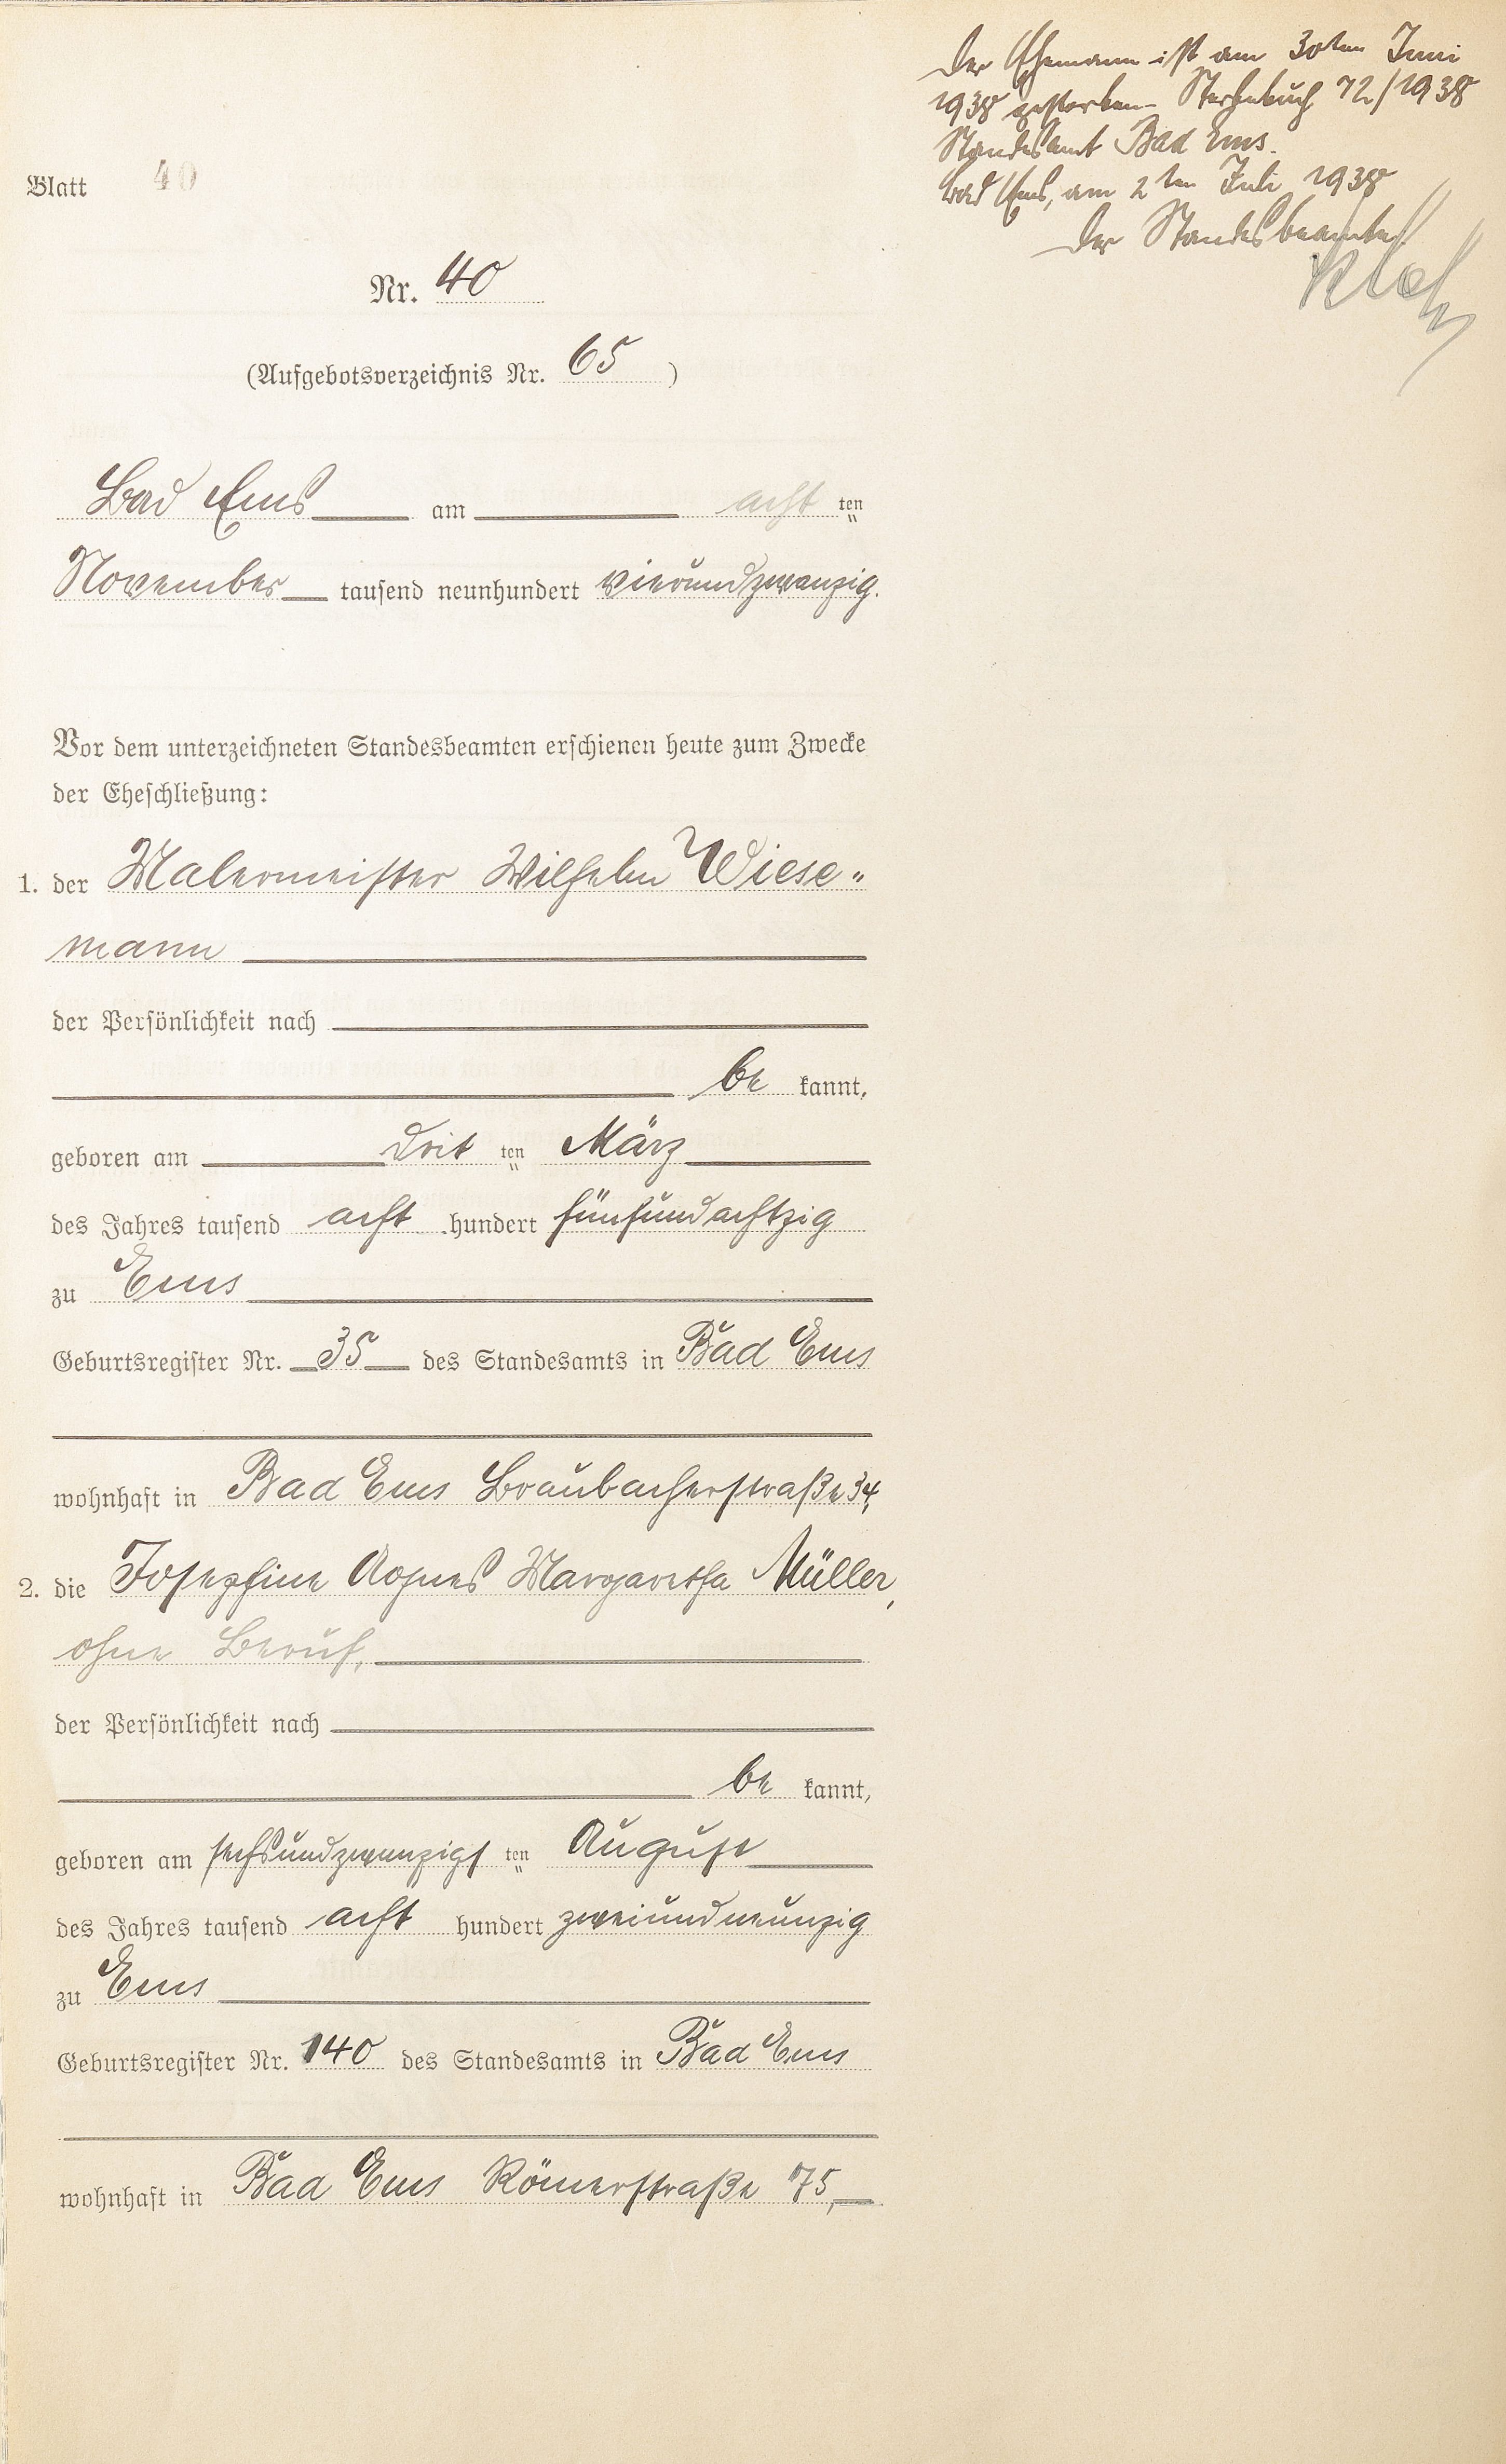 Der Ehemann ist am 30ten Juni
1938 gestorben. Sterbebuch 72/1938
Standesamt Bad Ems.
Bad Ems, am 2ten Juli 1938
Der Standesbeamte
Blatt 40
Nr. 40
(Aufgebotsverzeichnis Nr. 65)
Bad Ems am acht ten
November tausend neunhundert vierundzwanzig.
Vor dem unterzeichneten Standesbeamten erschienen heute zum Zwecke
der Eheschließung:
1. der Malermeister Wilhelm Wiese„
mann
der Persönlichkeit nach
be kannt,
geboren am drit ten März
des Jahres tausend acht hundert fünfundachtzig
zu Ems
Geburtsregister Nr. 35 des Standesamts in Bad Ems
wohnhaft in Bad Ems Braubacherstraße 34,
2. die Josephine Agnes Margaretha Müller,
ohne Beruf,
der Persönlichkeit nach
be kannt,
geboren am sechsundzwanzigs ten August
des Jahres tausend acht hundert zweiundneunzig
zu Ems
Geburtsregister Nr. 140 des Standesamts in Bad Ems
wohnhaft in Bad Ems Römerstraße 75,